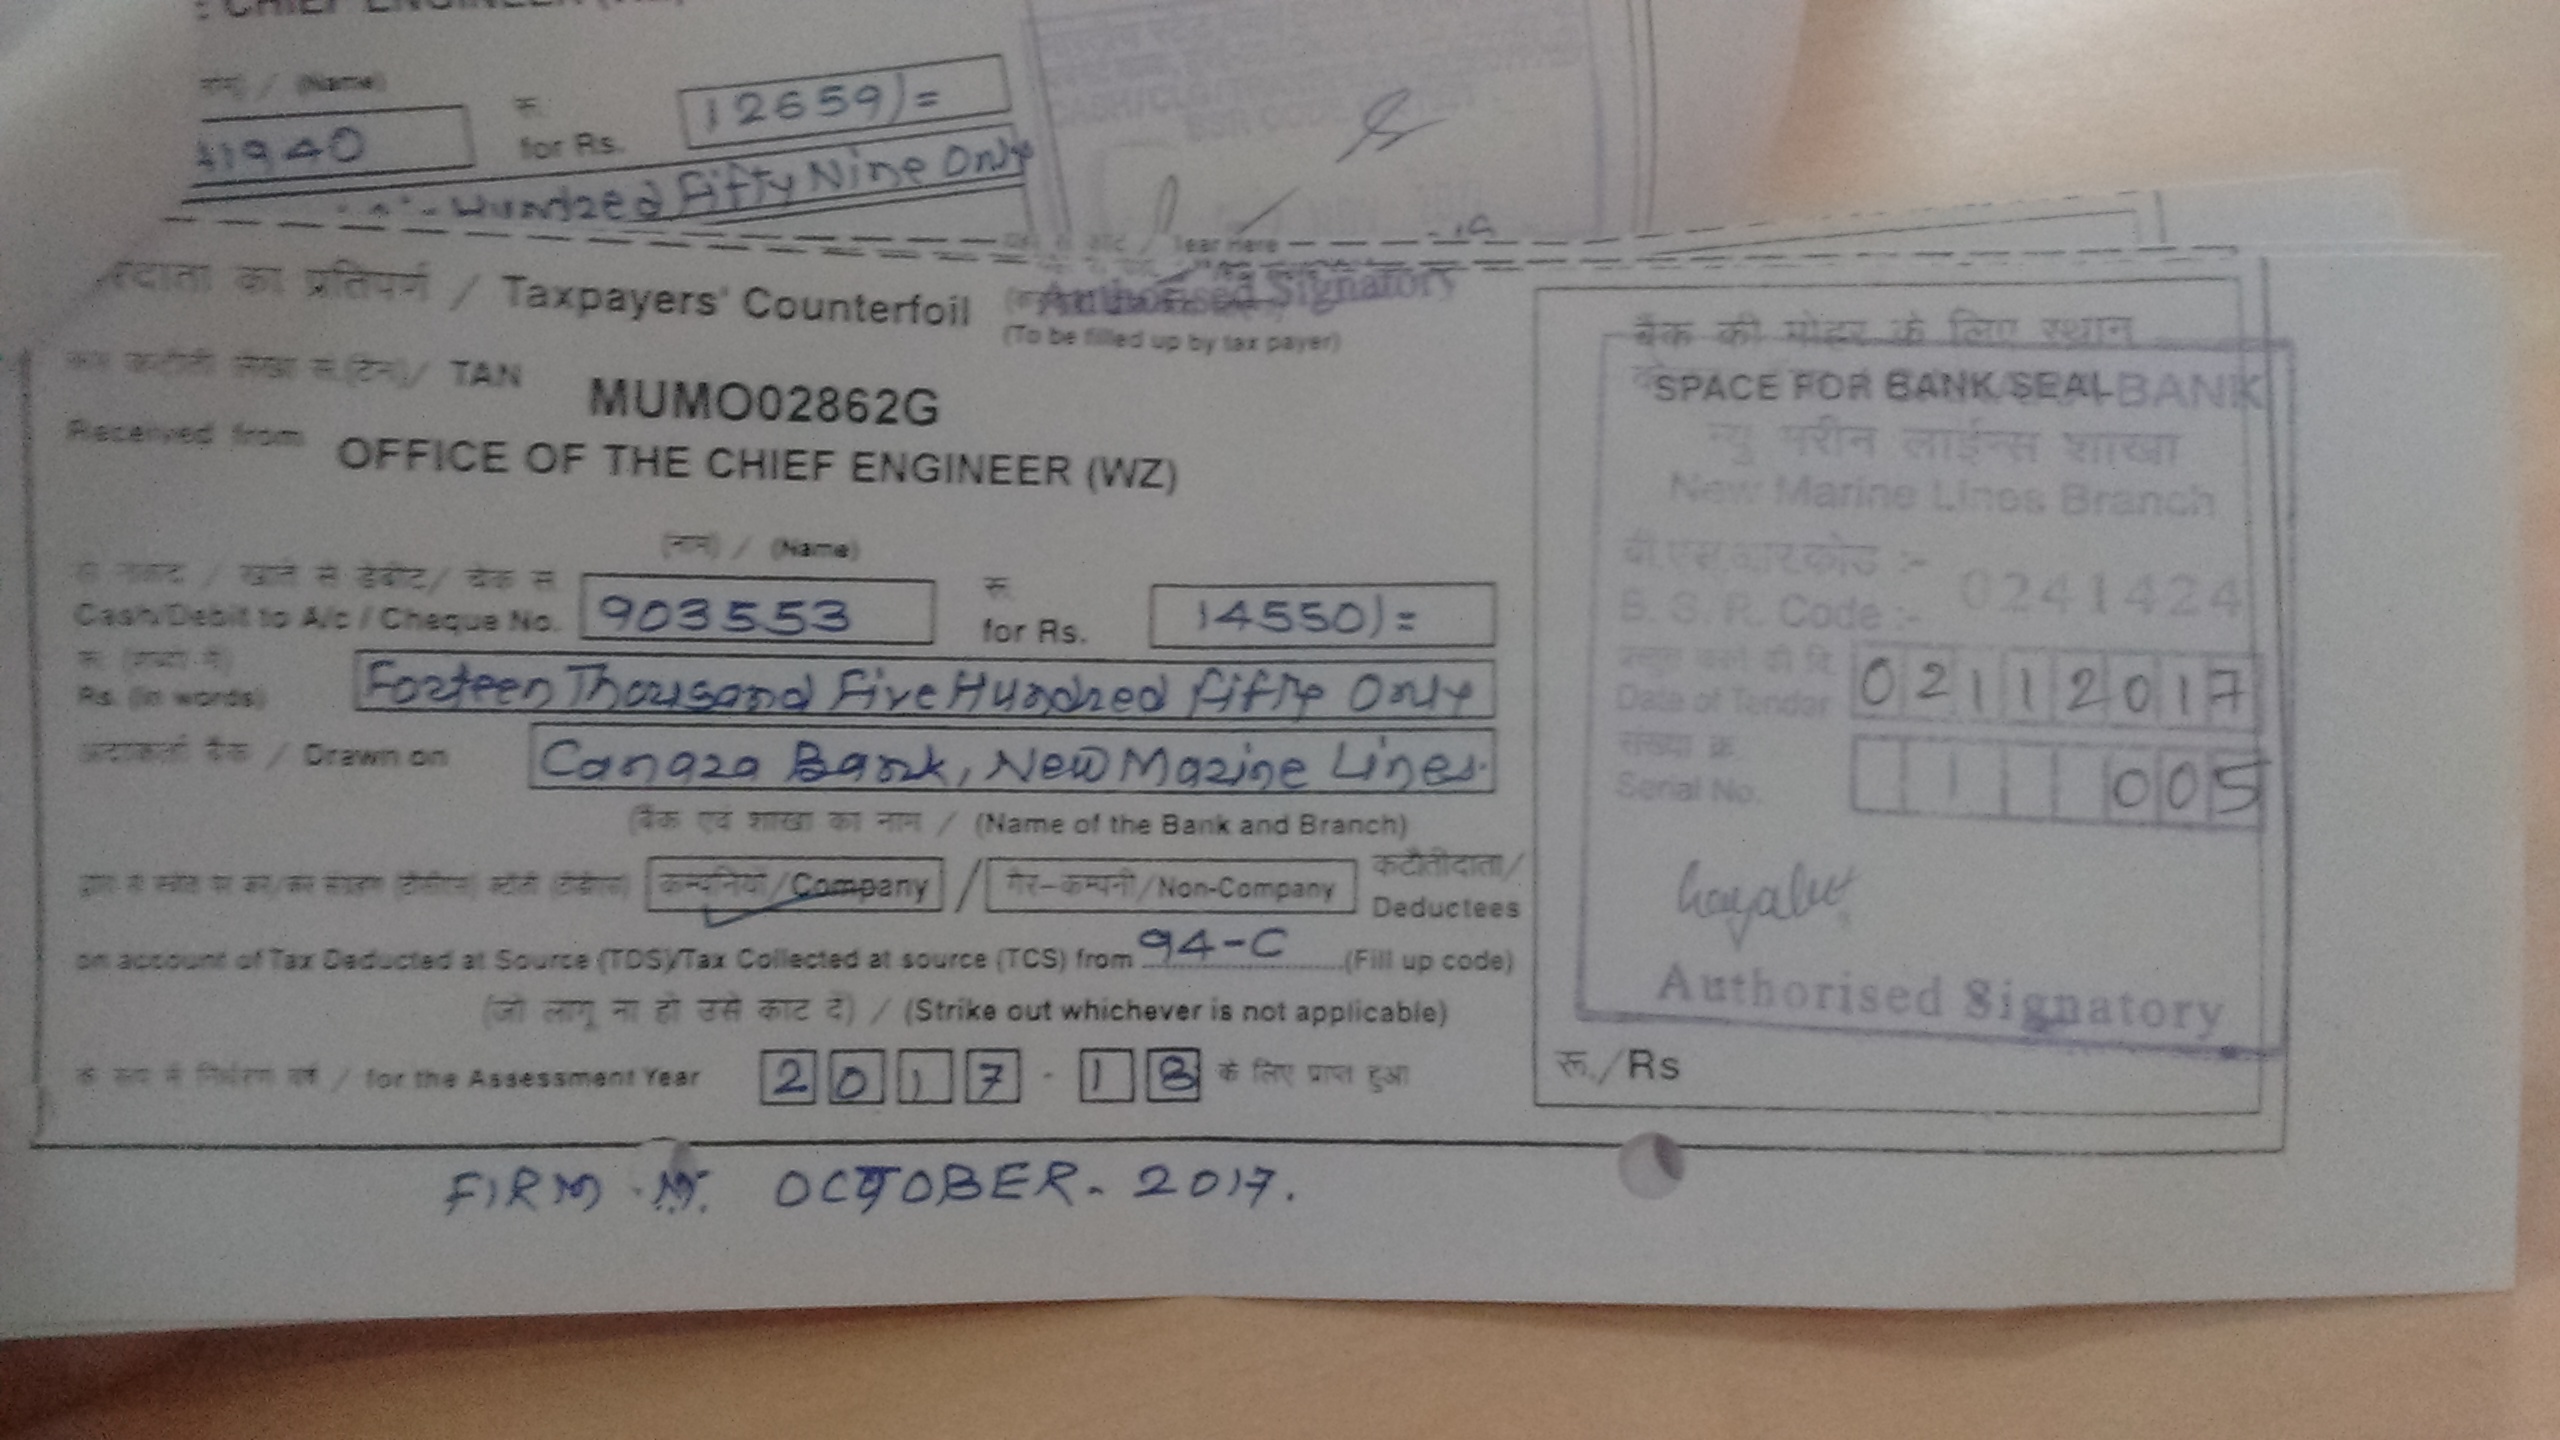 : CHIEF ENGINEER
नाम) / (Name)
1940 रू. for Rs. 12659)=
Hundred Fifty Nine Only
Tear Here
Authorised Signatory
का प्रतिपर्ण / Taxpayers' Counterfoil
(To be filled up by tax payer)
TAN MUMO02862G
Received from OFFICE OF THE CHIEF ENGINEER (WZ)
(नाम) / (Name)
नकद / खाते से डेबीट/ चेक सं
Cash/Debit to A/c / Cheque No. 903553 रू. for Rs. 14550)=
Rs. (in words) Forteen Thousand Five Hundred fifty Only
अदाकर्ता बैंक / Drawn on Canara Bank, New Marine Lines.
(बैंक एवं शाखा का नाम / (Name of the Bank and Branch)
कम्पनियां/Company / गैर-कम्पनी/Non-Company कटौतीदाता/
Deductees
on account of Tax Deducted at Source (TDS)/Tax Collected at source (TCS) from 94-C (Fill up code)
(जो लागू ना हो उसे काट दें) / (Strike out whichever is not applicable)
/ for the Assessment Year 2017-18 के लिए प्राप्त हुआ
बैंक की मोहर के लिए स्थान
SPACE FOR BANK SEAL
BANK
न्यु मरीन लाईन्स शाखा
New Marine Lines Branch
बी.एस.आर.कोड :-
B. S. R. Code :- 0241424
Date of Tender 02112017
Serial No. 005
Authorised Signatory
रू./Rs
FIRM OCTOBER- 2017.